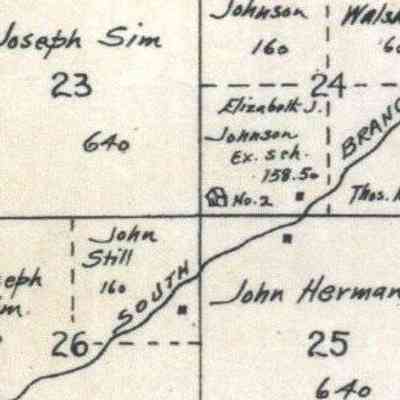 Joseph Sim
23
640
Johnson
160
24
Elizabeth J.
Johnson
Ex. Sch.
158.50
No. 2
BRANC
Thos.
John
Still
160
SOUTH
26
John Herman
25
640